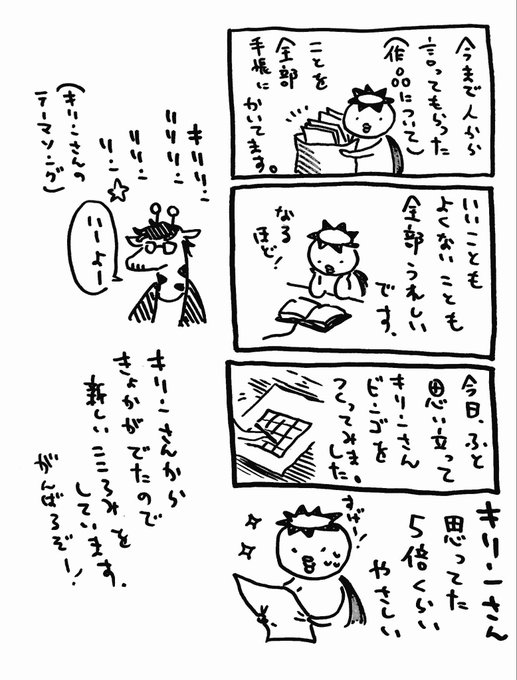 今まで人から
言ってもらった
(作品について)
ことを
全部
手帳に
かいてます。
いいことも
よくないことも
全部うれしい
です。
なる
ほど!
今日、ふと
思い立って
キリンさん
ビンゴを
つくってみま
した。
キリンさん
思ってた
5倍くらい
やさしい
すげー!
キリリン
リリリン
リリン
リン
☆
(キリンさんの
テーマソング)
いーよー
キリンさんから
きょかがでたので
新しいこころみを
しています。
がんばるぞー!